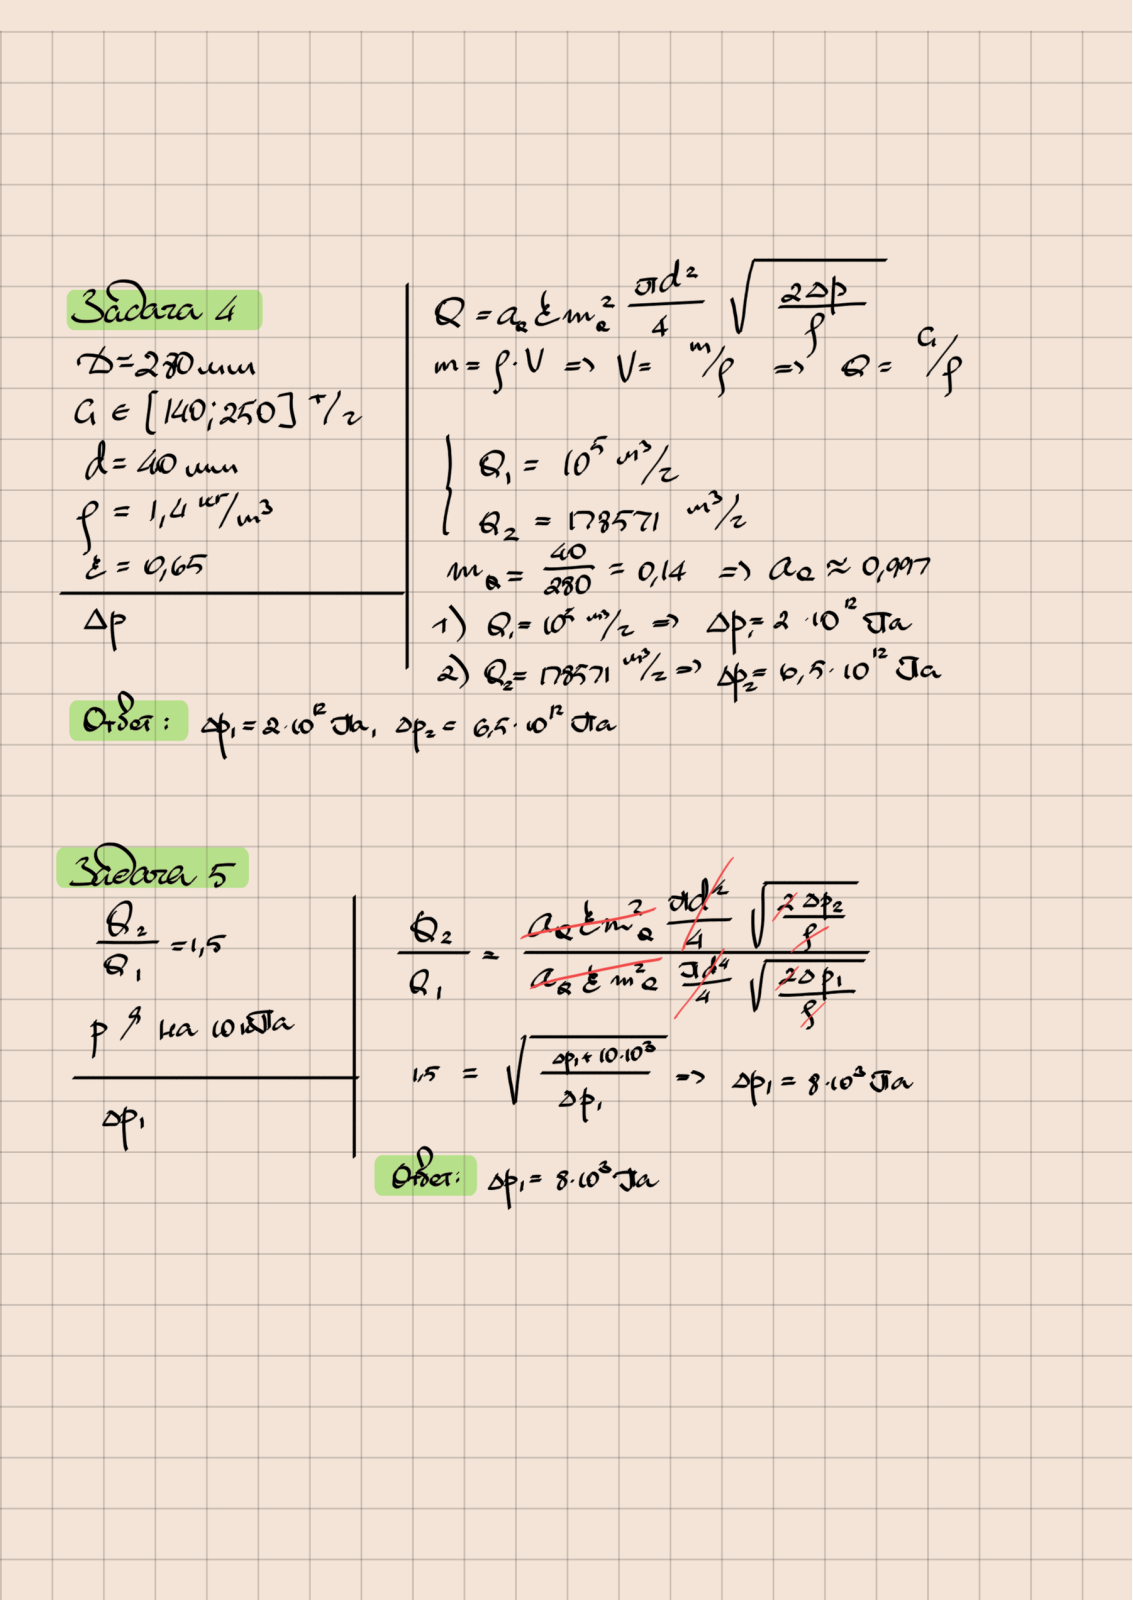 Задача 4
D = 280 мм
G ∈ [140; 250] т/г
d = 40 мм
ρ = 1,4 кг/м³
ε = 0,65
Δp
Q = a_Q ε m_Q² πd²/4 √(2Δp/ρ)
m = ρ·V => V = m/ρ => Q = G/ρ
{ Q₁ = 10⁵ м³/г
Q₂ = 178571 м³/г
m_Q = 40/280 = 0,14 => a_Q ≈ 0,997
1) Q₁ = 10⁵ м³/г => Δp₁ = 2·10¹² Па
2) Q₂ = 178571 м³/г => Δp₂ = 6,5·10¹² Па
Ответ: Δp₁ = 2·10¹² Па, Δp₂ = 6,5·10¹² Па
Задача 5
Q₂/Q₁ = 1,5
p ↑ на 10 кПа
Δp₁
Q₂/Q₁ = (a_Q ε m_Q² πd²/4 √(2Δp₂/ρ))/(a_Q ε m²_Q πd⁴/4 √(2Δp₁/ρ))
1,5 = √((Δp₁ + 10·10³)/Δp₁) => Δp₁ = 8·10³ Па
Ответ: Δp₁ = 8·10³ Па